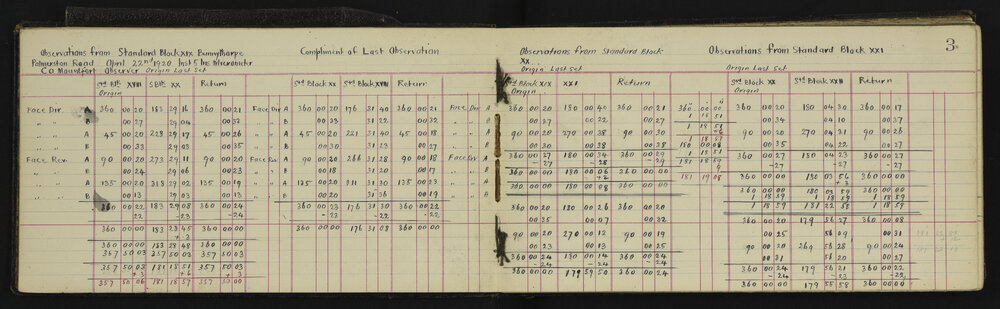 Observations from Standard Block XIX Bunnythorpe
Palmerston Road April 22nd 1920 Inst 5 ins Micrometer
C.O. Mountfort Observer Origin Last Set
Std Blk XVIII S Blk XX Return
Origin
Face Dir. A 360 00 20 183 29 16 360 00 21
" " B 00 27 29 04 00 33
" " A 45 00 20 228 29 17 45 00 26
" " B 00 33 29 03 00 35
Face Rev. A 90 00 20 273 29 11 90 00 20
" " B 00 24 29 06 00 23
" " A 135 00 20 318 29 02 135 00 19
" " B 00 13 29 03 00 13
360 00 22 183 29 08 360 00 24
22 -23 -24
360 00 00 183 28 45 360 00 00
+3
360 00 00 183 28 48 360 00 00
357 50 03 357 50 03 357 50 03
357 50 03 181 18 51 357 50 03
+3 +6 +3
357 50 06 181 18 57 357 50 00
Compliment of Last Observation
Std Block XX Std Block XVIII Return
Face Dir A 360 00 20 176 31 40 360 00 21
" " B 00 27 31 22 00 32
" " A 45 00 20 221 31 40 45 00 18
" " B 00 30 31 23 00 27
Face Rev A 90 00 20 266 31 28 90 00 18
" " B 00 18 31 20 00 17
" " A 135 00 20 311 31 30 135 00 23
" " B 00 25 31 36 00 19
360 00 23 176 31 30 360 00 22
360 00 00 176 31 08 360 00 00
Observations from Standard Block
XX
Origin Last Set
Std Block XIX XXI Return
Origin
Face Dir A 360 00 20 180 00 40 360 00 21
" " B 00 37 00 22 00 27
" " A 90 00 20 270 00 38 90 00 30
" " B 00 30 00 38 00 38
Face Rev A 360 00 27 180 00 34 360 00 29
-27 -28 -29
360 00 00 180 00 06 360 00 00
+2
360 00 00 180 00 08 360 00 00
360 00 20 180 00 26 360 00 20
00 35 00 07 00 32
90 00 20 270 00 12 90 00 19
00 23 00 13 00 25
360 00 24 180 00 14 360 00 24
-24 -24 -24
360 00 00 179 59 50 360 00 24
3
Observations from Standard Block XXI
Origin Last Set
Std Block XX Std Block XXII Return
Origin
360 00 00
1 18 51
1 18 51
1 18 57
180 00 08
181 18 59
181 19 08
360 00 20 180 04 30 360 00 17
00 34 04 10 00 37
90 00 20 270 04 31 90 00 26
00 35 04 22 00 27
360 00 27 180 04 23 360 00 27
-27 -27 -27
360 00 00 180 03 56 360 00 00
+3
360 00 00 180 03 59 360 00 00
1 18 59 1 18 59 1 18 59
360 00 20 179 56 27 360 00 08
00 25 56 09 00 31
90 00 20 269 56 28 90 00 24
00 31 56 20 00 27
360 00 24 179 56 21 360 00 22
-24 -23 -22
360 00 00 179 55 58 360 00 00